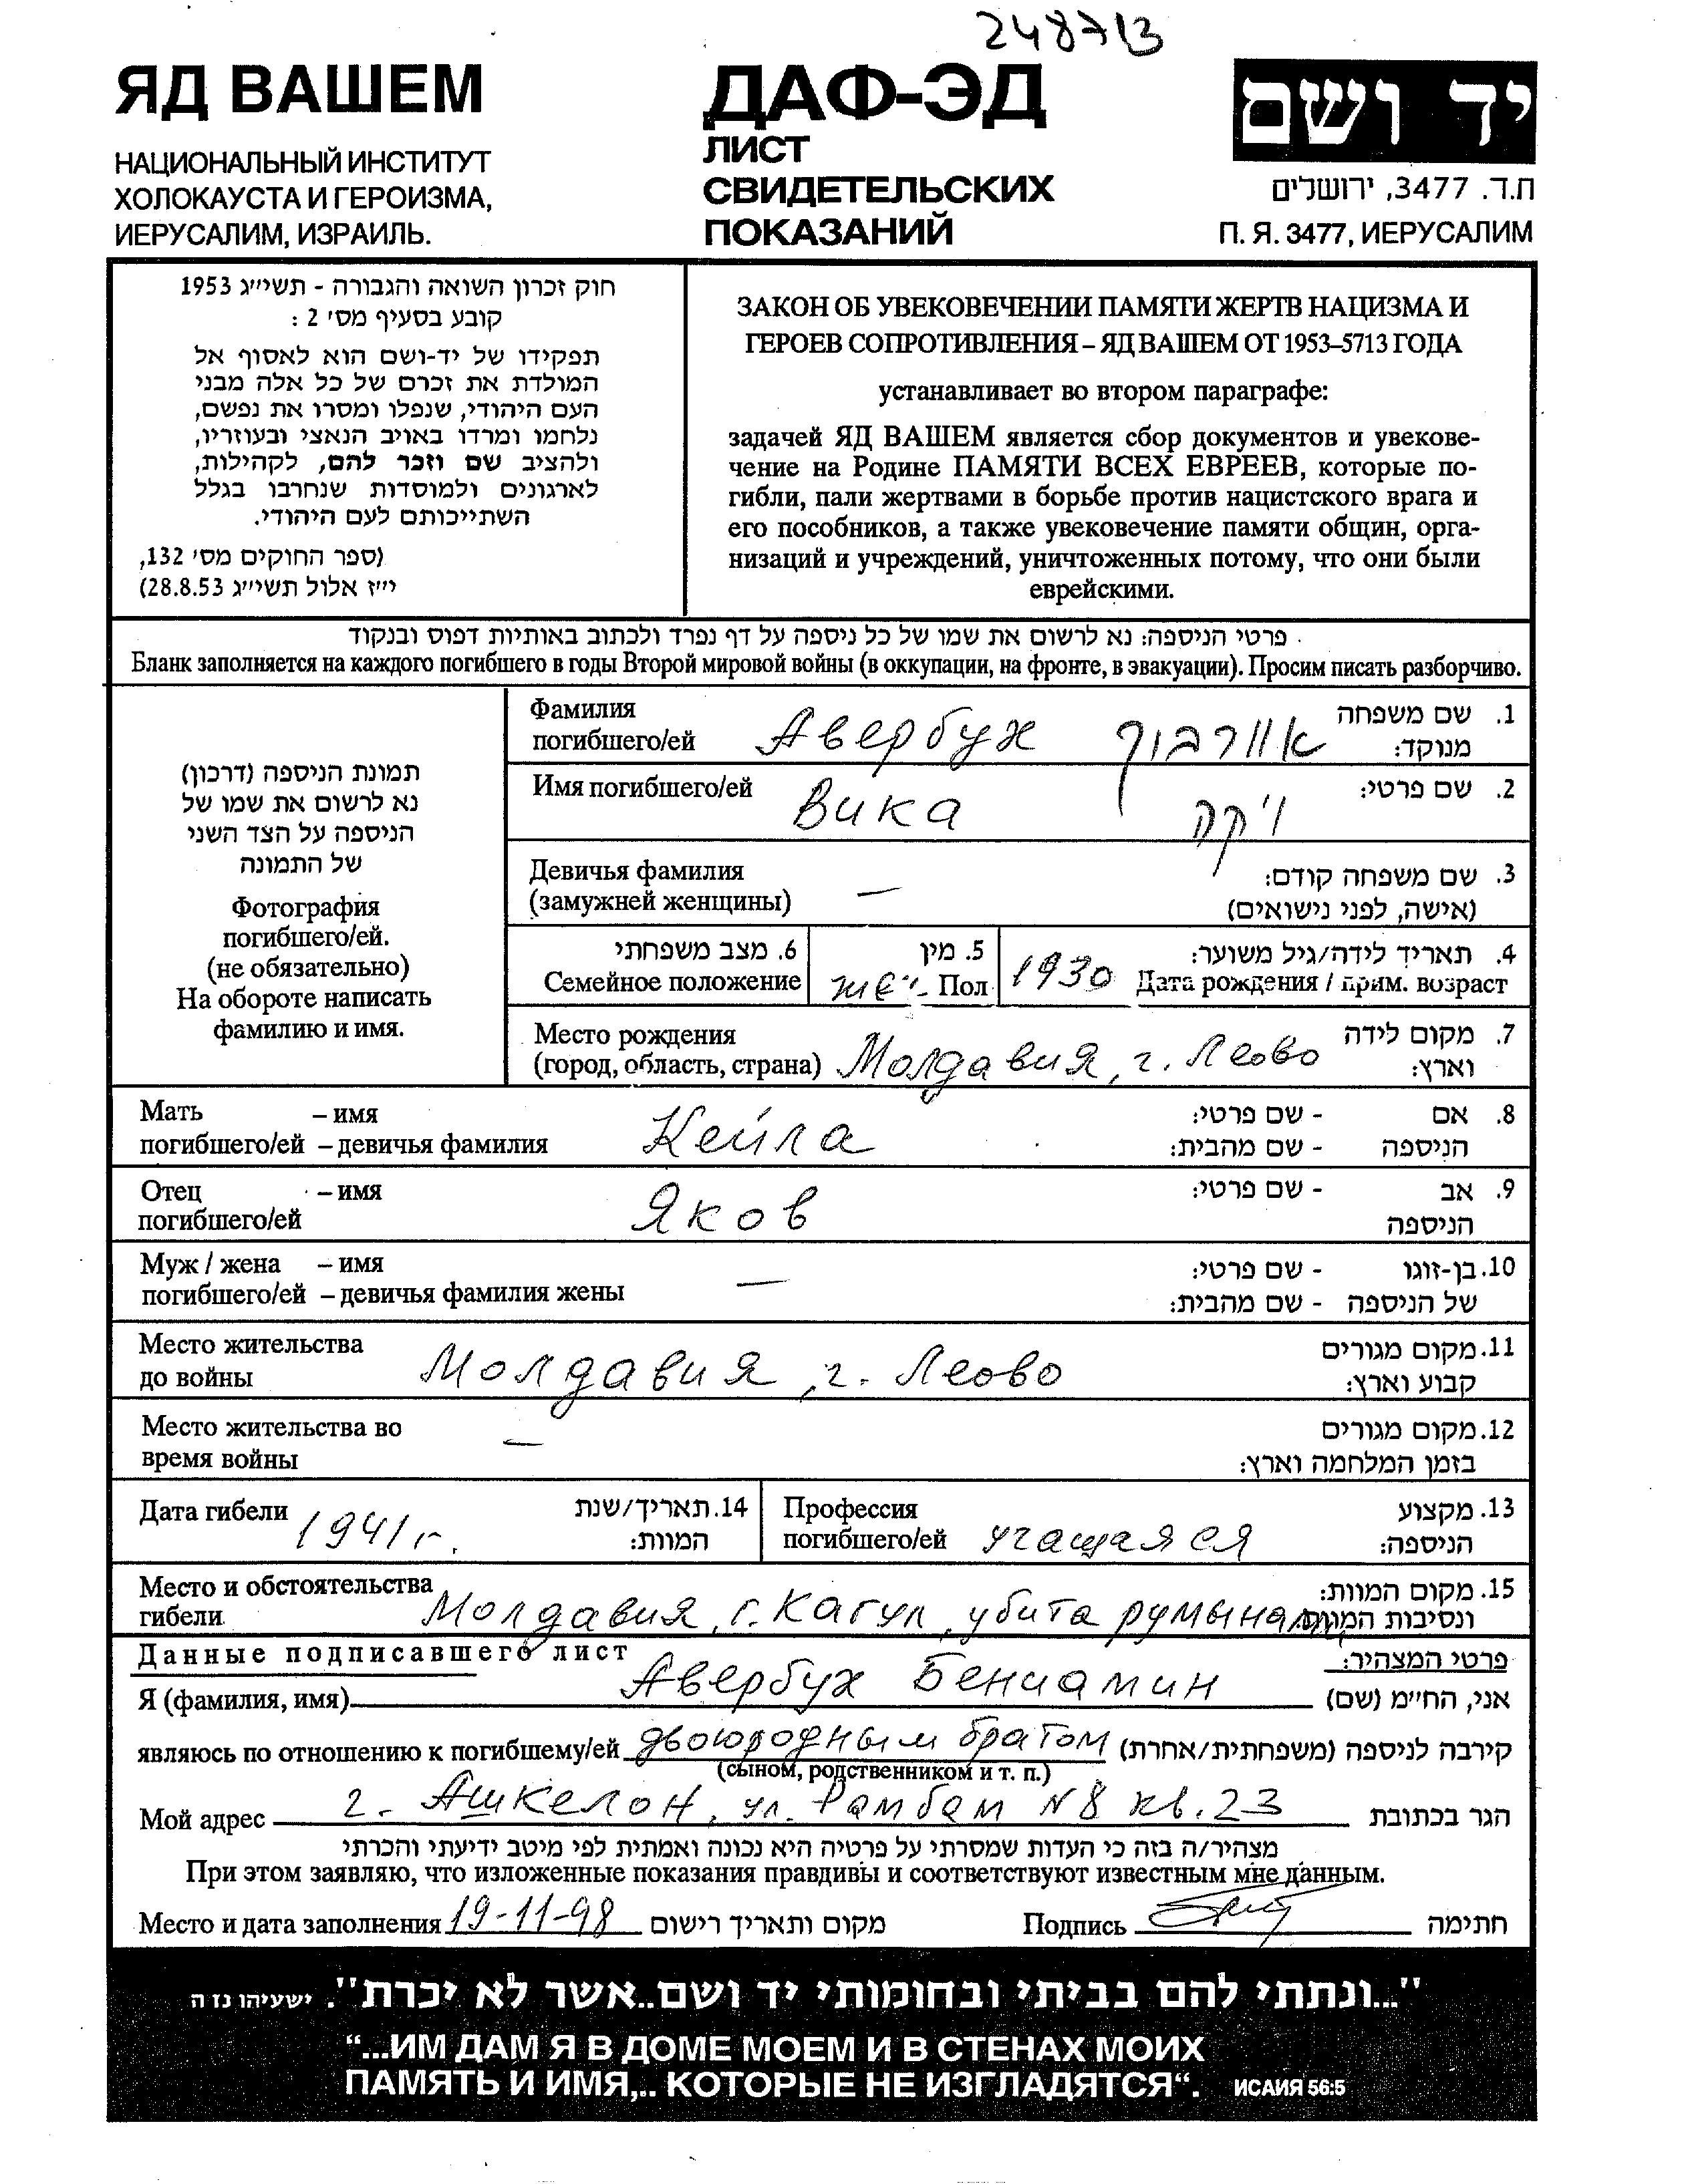 248713
ЯД ВАШЕМ
НАЦИОНАЛЬНЫЙ ИНСТИТУТ
ХОЛОКАУСТА И ГЕРОИЗМА,
ИЕРУСАЛИМ, ИЗРАИЛЬ.
ДАФ-ЭД
ЛИСТ
СВИДЕТЕЛЬСКИХ
ПОКАЗАНИЙ
יד ושם
ת.ד. 3477, ירושלים
П. Я. 3477, ИЕРУСАЛИМ
חוק זכרון השואה והגבורה - תשי״ג 1953
קובע בסעיף מס׳ 2 :
תפקידו של יד-ושם הוא לאסוף אל
המולדת את זכרם של כל אלה מבני
העם היהודי, שנפלו ומסרו את נפשם,
נלחמו ומרדו באויב הנאצי ובעוזריו,
ולהציב שם וזכר להם, לקהילות,
לארגונים ולמוסדות שנחרבו בגלל
השתייכותם לעם היהודי.
(ספר החוקים מס׳ 132,
י״ז אלול תשי״ג 28.8.53)
ЗАКОН ОБ УВЕКОВЕЧЕНИИ ПАМЯТИ ЖЕРТВ НАЦИЗМА И
ГЕРОЕВ СОПРОТИВЛЕНИЯ – ЯД ВАШЕМ ОТ 1953–5713 ГОДА
устанавливает во втором параграфе:
задачей ЯД ВАШЕМ является сбор документов и увекове-
чение на Родине ПАМЯТИ ВСЕХ ЕВРЕЕВ, которые по-
гибли, пали жертвами в борьбе против нацистского врага и
его пособников, а также увековечение памяти общин, орга-
низаций и учреждений, уничтоженных потому, что они были
еврейскими.
פרטי הניספה: נא לרשום את שמו של כל ניספה על דף נפרד ולכתוב באותיות דפוס ובנקוד
Бланк заполняется на каждого погибшего в годы Второй мировой войны (в оккупации, на фронте, в эвакуации). Просим писать разборчиво.
תמונת הניספה (דרכון)
נא לרשום את שמו של
הניספה על הצד השני
של התמונה
Фотография
погибшего/ей.
(не обязательно)
На обороте написать
фамилию и имя.
Фамилия
погибшего/ей Авербух אוורבוך
1. שם משפחה
מנוקד:
Имя погибшего/ей Вика ויקה 2. שם פרטי:
Девичья фамилия
(замужней женщины) —
3. שם משפחה קודם:
(אישה, לפני נישואים)
6. מצב משפחתי
Семейное положение
5. מין
жен. Пол
4. תאריך לידה/גיל משוער:
1930 Дата рождения / прим. возраст
Место рождения
(город, область, страна) Молдавия, г. Леово
7. מקום לידה
וארץ:
Мать – имя
погибшего/ей – девичья фамилия Кейла
8. אם - שם פרטי:
הניספה - שם מהבית:
Отец – имя
погибшего/ей Яков
9. אב - שם פרטי:
הניספה
Муж / жена – имя
погибшего/ей – девичья фамилия жены —
10. בן-זוגו - שם פרטי:
של הניספה - שם מהבית:
Место жительства
до войны Молдавия, г. Леово
11. מקום מגורים
קבוע וארץ:
Место жительства во
время войны —
12. מקום מגורים
בזמן המלחמה וארץ:
Дата гибели 1941 г.
14. תאריך/שנת
המוות:
Профессия
погибшего/ей учащаяся
13. מקצוע
הניספה:
Место и обстоятельства
гибели Молдавия, г. Кагул, убита румынами
15. מקום המוות:
ונסיבות המוות
Данные подписавшего лист פרטי המצהיר:
Я (фамилия, имя) Авербух Бениамин אני, הח״מ (שם)
являюсь по отношению к погибшему/ей двоюродным братом קירבה לניספה (משפחתית/אחרת)
(сыном, родственником и т. п.)
Мой адрес г. Ашкелон, ул. Рамбам N 8 кв. 23 הגר בכתובת
מצהיר/ה בזה כי העדות שמסרתי על פרטיה היא נכונה ואמתית לפי מיטב ידיעתי והכרתי
При этом заявляю, что изложенные показания правдивы и соответствуют известным мне данным.
Место и дата заполнения 19-11-98 מקום ותאריך רישום Подпись חתימה
"...ונתתי להם בביתי ובחומותי יד ושם..אשר לא יכרת". ישעיהו נז ה
“...ИМ ДАМ Я В ДОМЕ МОЕМ И В СТЕНАХ МОИХ
ПАМЯТЬ И ИМЯ,.. КОТОРЫЕ НЕ ИЗГЛАДЯТСЯ“. ИСАИЯ 56:5